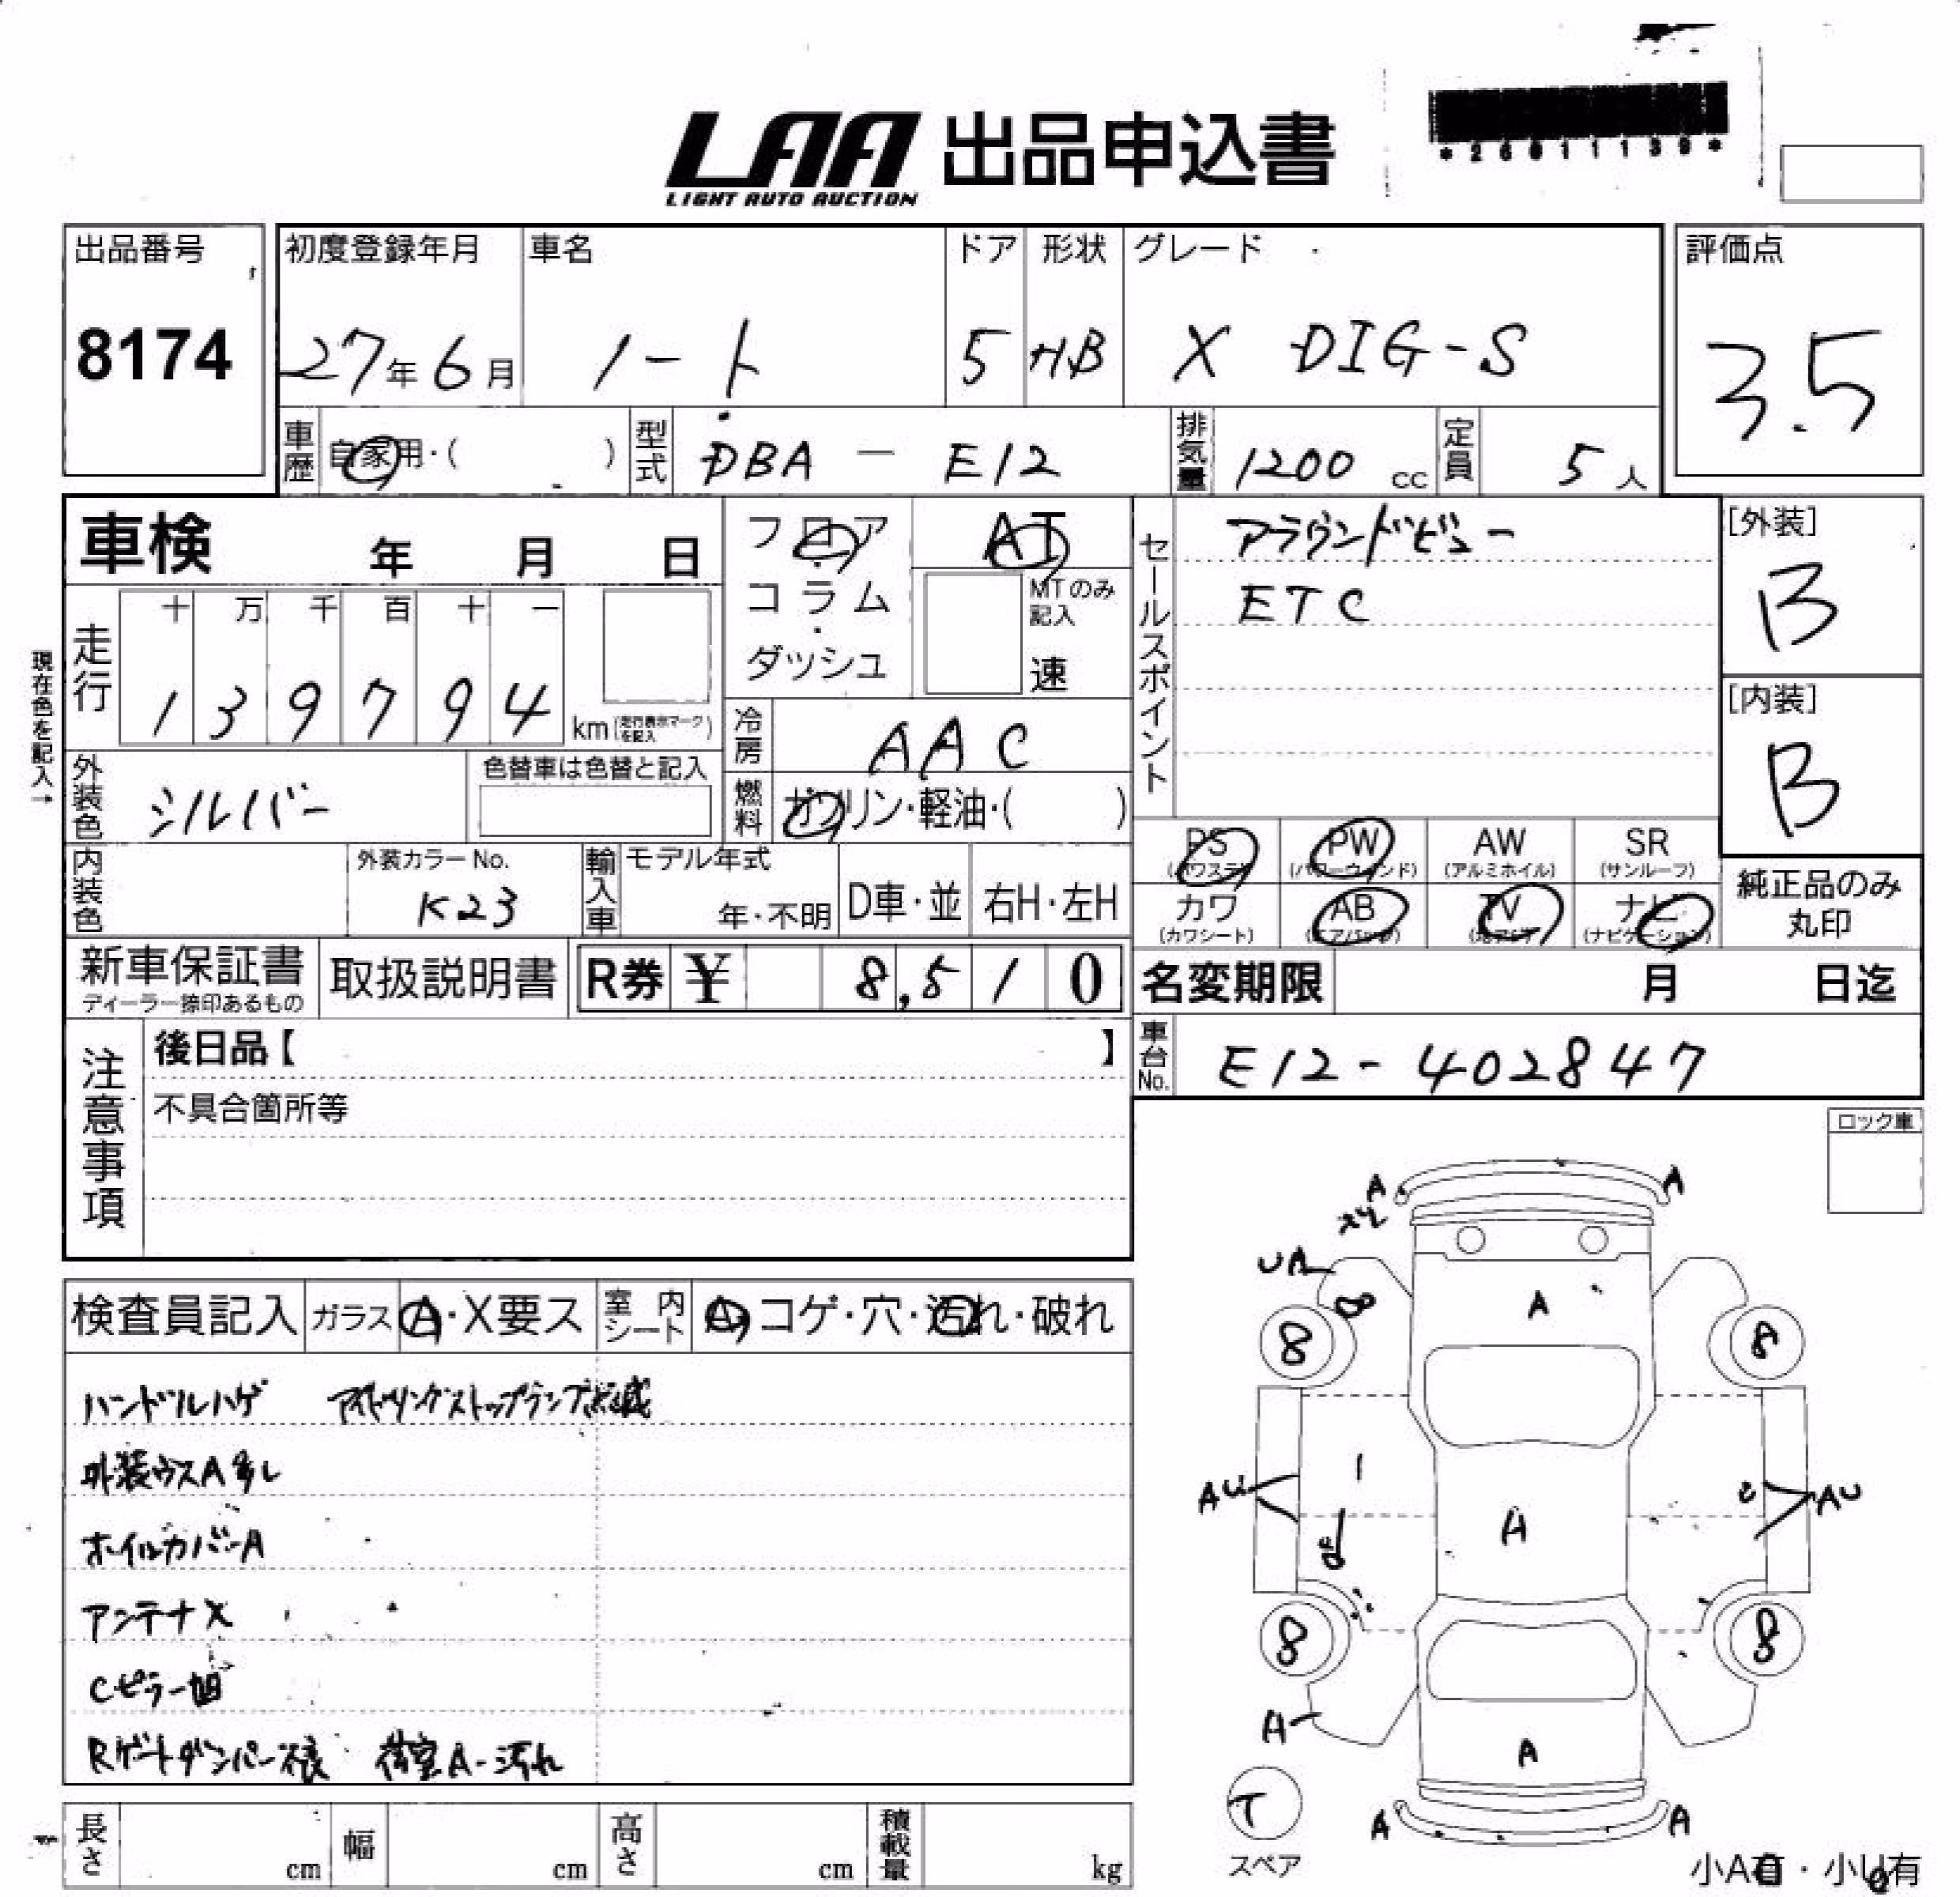 LAA 出品申込書
LIGHT AUTO AUCTION
出品番号
8174
初度登録年月
27年6月
車名
ノート
ドア
5
形状
HB
グレード
X DIG-S
評価点
3.5
車歴 自家用・( )
型式 DBA - E12
排気量 1200 cc
定員 5人
車検 年 月 日
フロア
コラム
・
ダッシュ
AT
MTのみ
記入
速
セールスポイント
アラウンドビュー
ETC
[外装]
B
[内装]
B
現在色を記入→
走行
十 万 千 百 十 一
1 3 9 7 9 4 km (走行表示マークを記入)
冷房 AAC
外装色 シルバー
色替車は色替と記入
燃料 ガソリン・軽油・( )
PS (パワステ)
PW (パワーウィンド)
AW (アルミホイル)
SR (サンルーフ)
カワ (カワシート)
AB (エアバッグ)
TV
ナビ (ナビゲーション)
純正品のみ
丸印
内装色
外装カラーNo.
K23
輸入車
モデル年式
年・不明
D車・並
右H・左H
新車保証書
ディーラー捺印あるもの
取扱説明書
R券 ¥ 8,510
名変期限 月 日迄
車台No. E12-402847
注意事項
後日品【 】
不具合箇所等
ロック車
検査員記入
ガラス A・X要ス
室内シート A・コゲ・穴・汚れ・破れ
ハンドルハゲ アイドリングストップランプ点滅
外装ウスA多し
ホイルカバーA
アンテナX
Cピラー凹
Rゲートダンパー不良 荷室A-汚れ
A A
UA
A
8 8
AU
A
AU
8 8
A
A
T
スペア
A A
小A有・小U有
長さ cm
幅 cm
高さ cm
積載量 kg